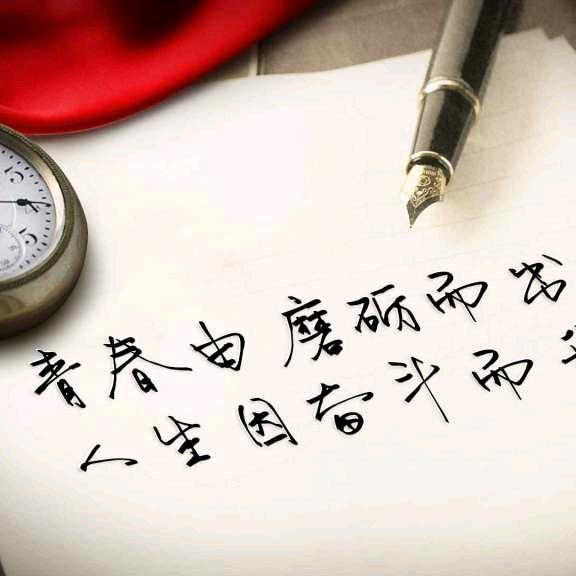 青春由磨砺而出
人生因奋斗而